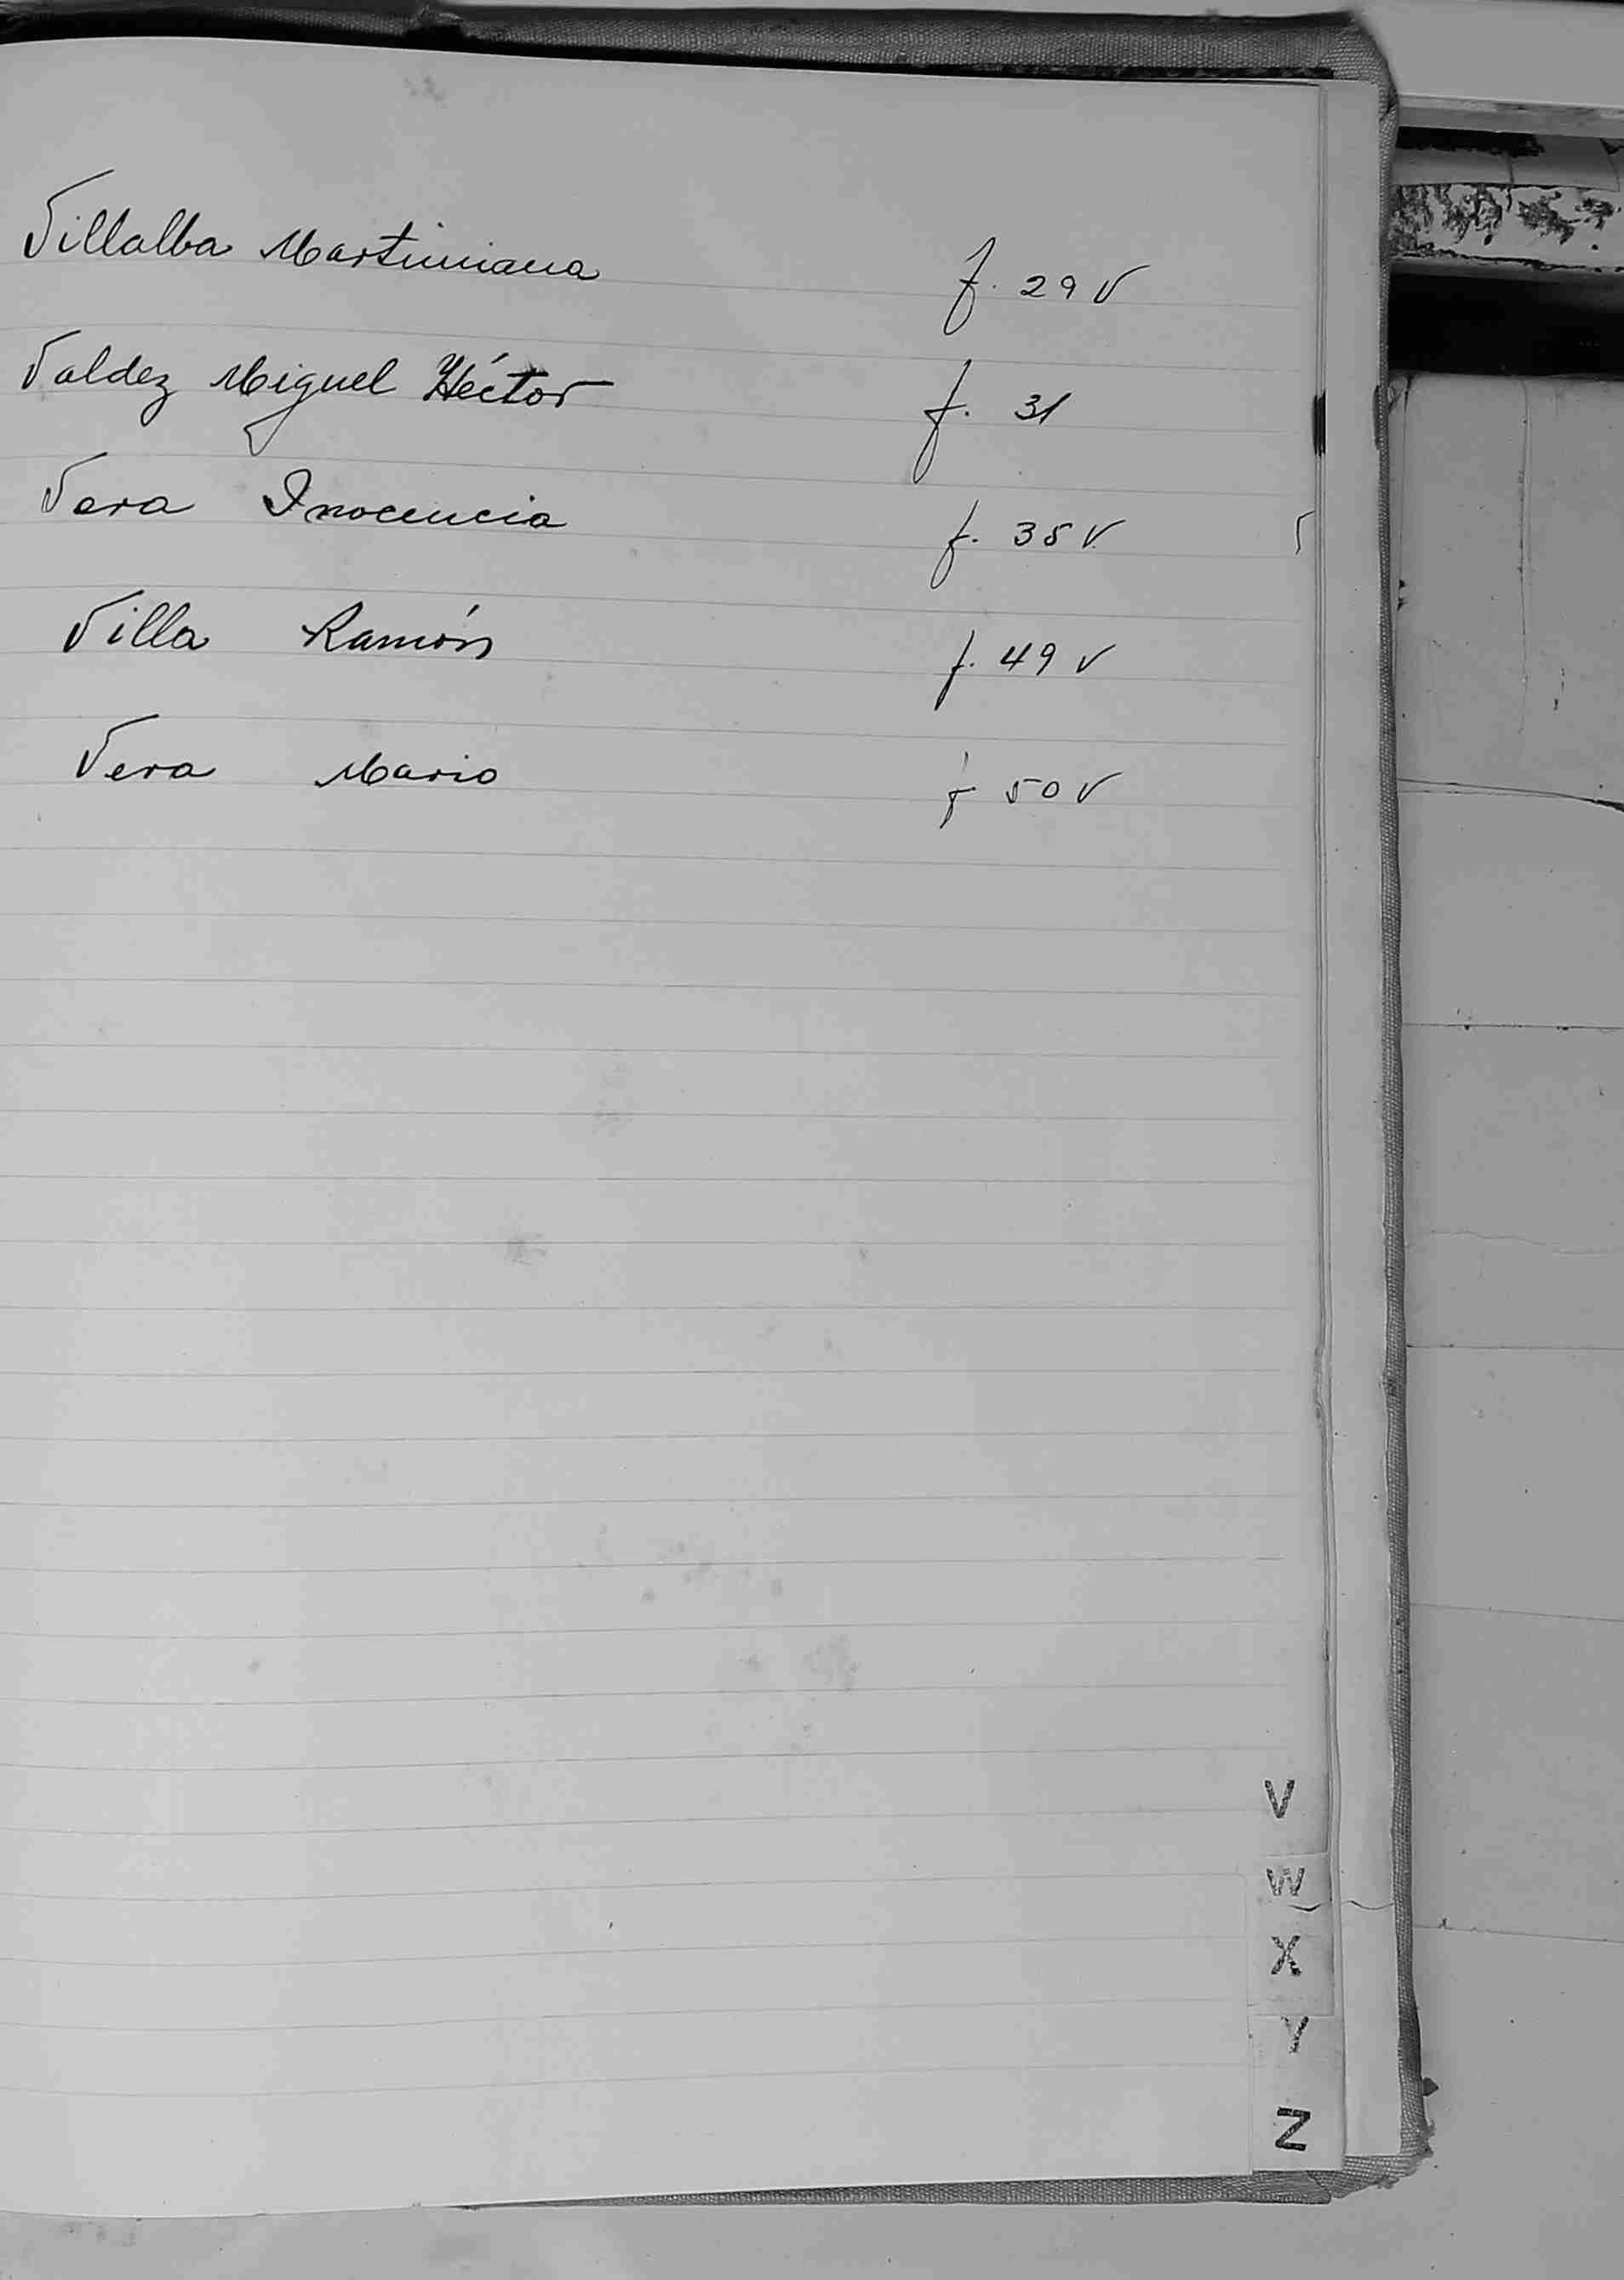 Villalba Martiniana f. 29 v
Valdez Miguel Héctor f. 31
Vera Inocencia f. 35 v.
Villa Ramón f. 49 v
Vera Mario f 50 v
V
W
X
Y
Z